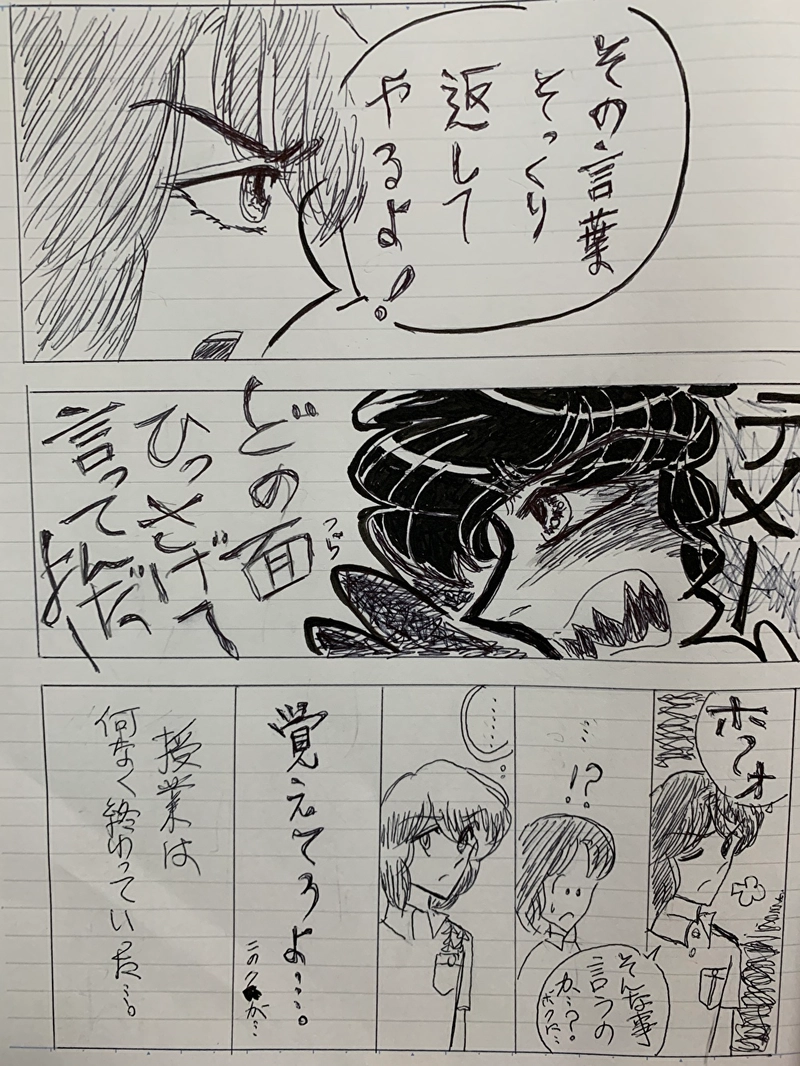 その言葉
そっくり
返して
やるよ!
テメー
どの面
つら
ひっさげて
言ってんだ
よー
そんな事
言うの
か…?
ボクに…
…!?
……
覚えてろよ…。
授業は
何なく終わっていった…。